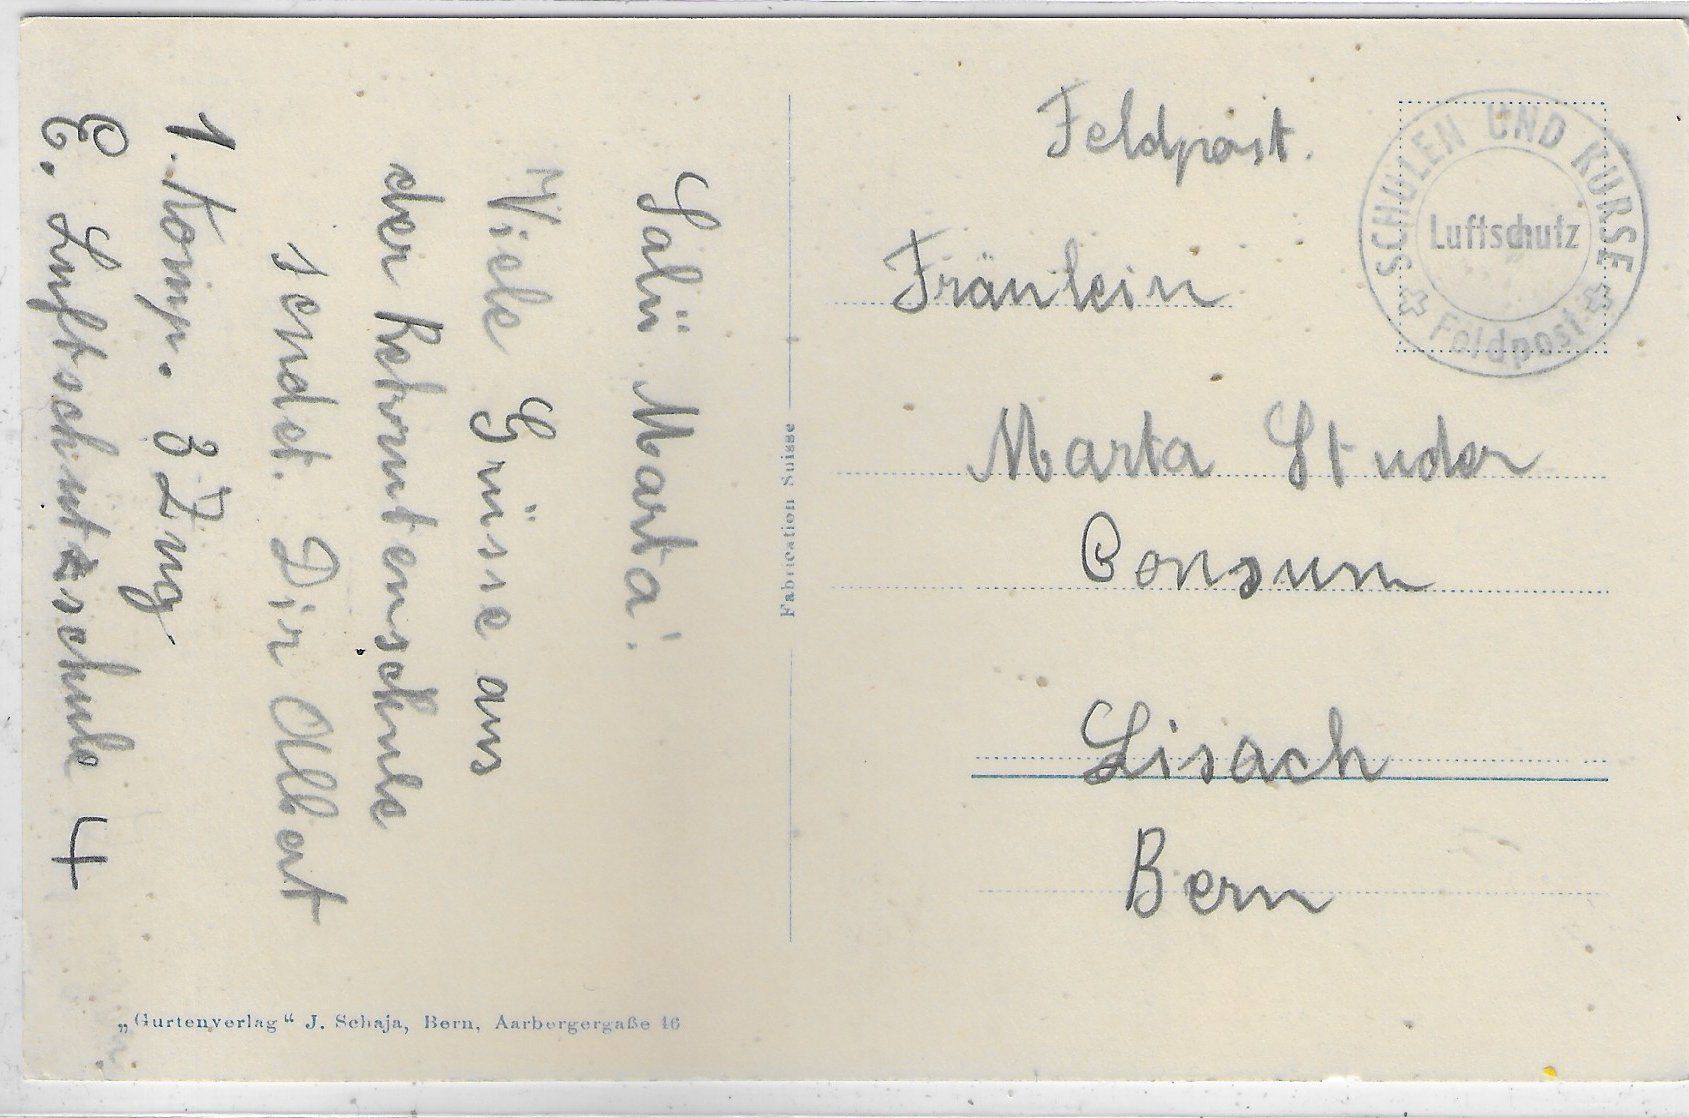 Salü Marta!
Viele Grüsse aus
der Rekrutenschule
sendet. Dir Albert
1. Komp. 3 Zug
E. Luftschutzschule 4
Fabrication Suisse
„Gurtenverlag“ J. Schaja, Bern, Aarbergergaße 46
Feldpost.
SCHULEN UND KURSE
Luftschutz
Feldpost
Fräulein
Marta Studer
Consum
Lisach
Bern